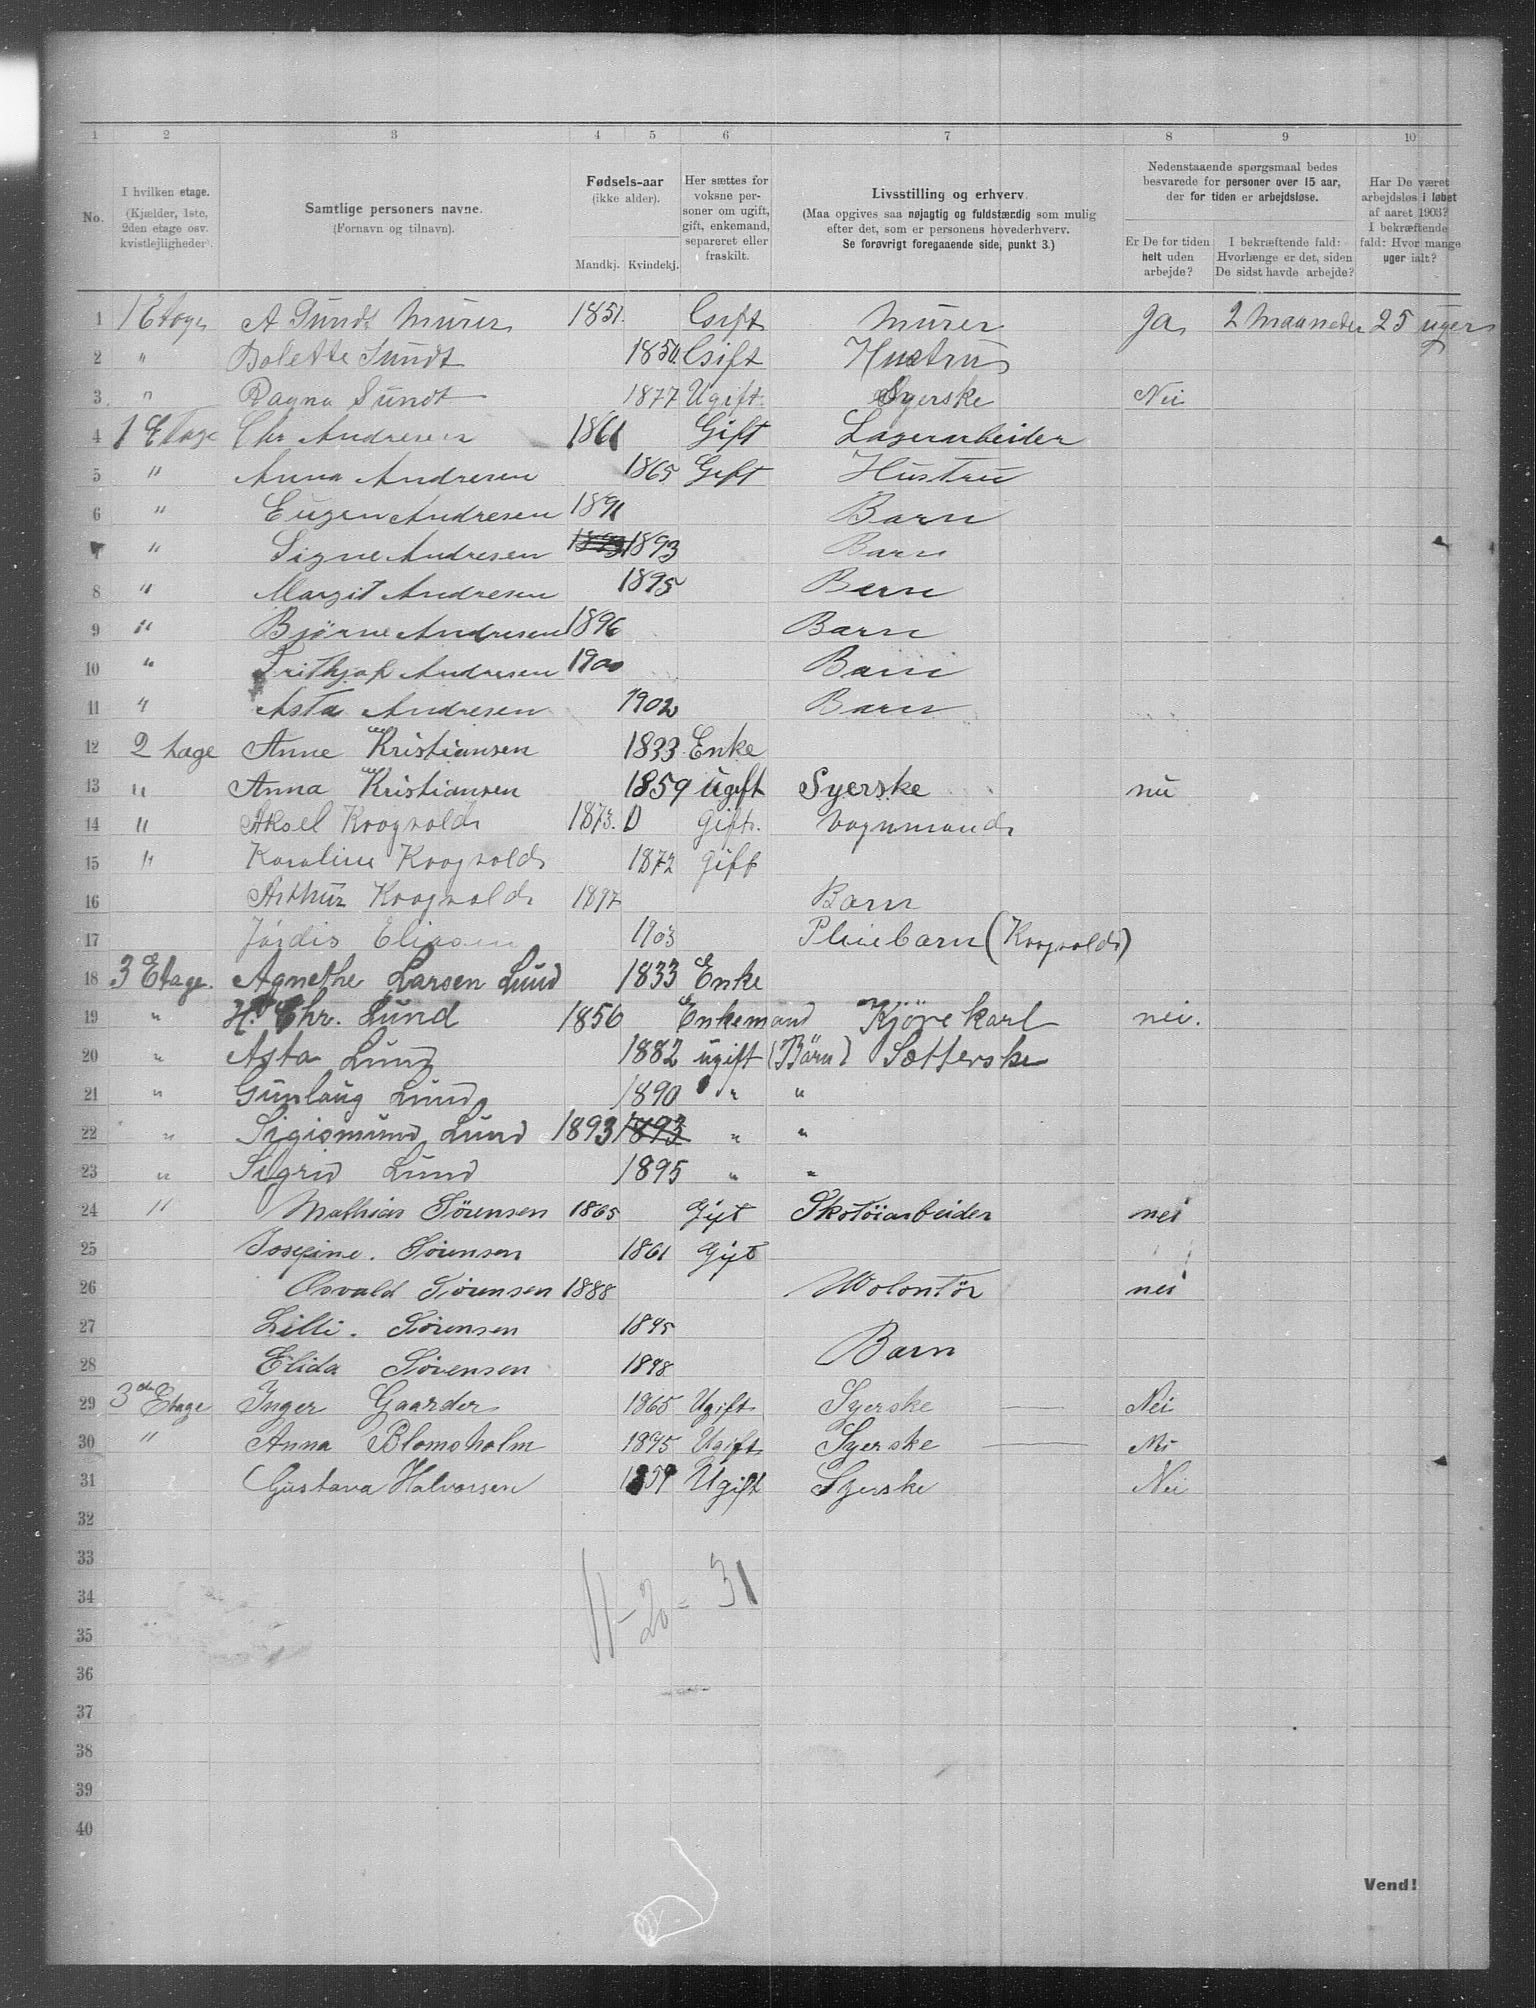 1 2 3 4 5 6 7 8 9 10
No.
I hvilken etage.
(Kjælder, 1ste,
2den etage osv.
kvistlejligheder).
Samtlige personers navne.
(Fornavn og tilnavn).
Fødsels-aar
(ikke alder).
Mandkj. Kvindekj.
Her sættes for
voksne per-
soner om ugift,
gift, enkemand,
separeret eller
fraskilt.
Livsstilling og erhverv.
(Maa opgives saa nøjagtig og fuldstærdig som mulig
efter det, som er personens hovederhverv.
Se forøvrigt foregaaende side, punkt 3.)
Nedenstaaende spørgsmaal bedes
besvarede for personer over 15 aar,
der for tiden er arbejdsløse.
Er De for tiden
helt uden
arbejde?
I bekræftende fald:
Hvorlænge er det, siden
De sidst havde arbejde?
Har De været
arbejdsløs i løbet
af aaret 1903?
I bekræftende
fald: Hvor mange
uger ialt?
1 1 Etage A Sundt Murer 1851. Gift Murer Ja 2 Maaneder 25 uger
2 " Bolette Sundt 1850. Gift Hustru
3 " Ragna Sundt 1877 Ugift. Syerske Nei
4 1 Etage Chr Andresen 1861 Gift Lagerarbeider
5 " Anna Andresen 1865 Gift Hustru
6 " Eugen Andresen 1891 Barn
7 " Signe Andresen 1893 1893 Barn
8 " Margit Andresen 1895 Barn
9 " Bjørne Andresen 1896 Barn
10 " Frithjof Andresen 1900 Barn
11 " Asta Andresen 1902 Barn
12 2 tage Anne Kristiansen 1833 Enke
13 " Anna Kristiansen 1859 ugift Syerske nei
14 " Aksel Krogvold 1873. D gift. Vognmand
15 " Karoline Krogvold 1872 gift
16 Arthur Krogvold 1897 Barn
17 Jördis Eliasen 1903 Pleiebarn (Krogvold)
18 3 Etage. Agnethe Larsen Lund 1833 Enke
19 " H. Chr. Lund 1856 Enkemand Kjørekarl nei.
20 " Asta Lund 1882 ugift (Barn) Sætterske
21 " Gunlaug Lund 1890 " "
22 " Sigismund Lund 1893 1893 " "
23 " Sigrid Lund 1895 " "
24 " Mathias Sörensen 1865 Gift Skotöiarbeider nei
25 Josefine. Sörensen 1861 Gift
26 Osvald Sörensen 1888 Wolontör nei
27 Lilli. Sörensen 1895
28 Elida Sörensen 1898 Barn
29 3die Etage Inger Gaarder 1865 Ugift Syerske Nei
30 " Anna Blomsholm 1875 Ugift Syerske Nei
31 Gustava Halvorsen 1859 Ugift Syerske Nei
32
33
34 11 - 20 = 31
35
36
37
38
39
40
Vend!